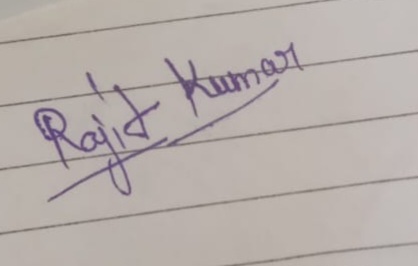 Rajit Kumar